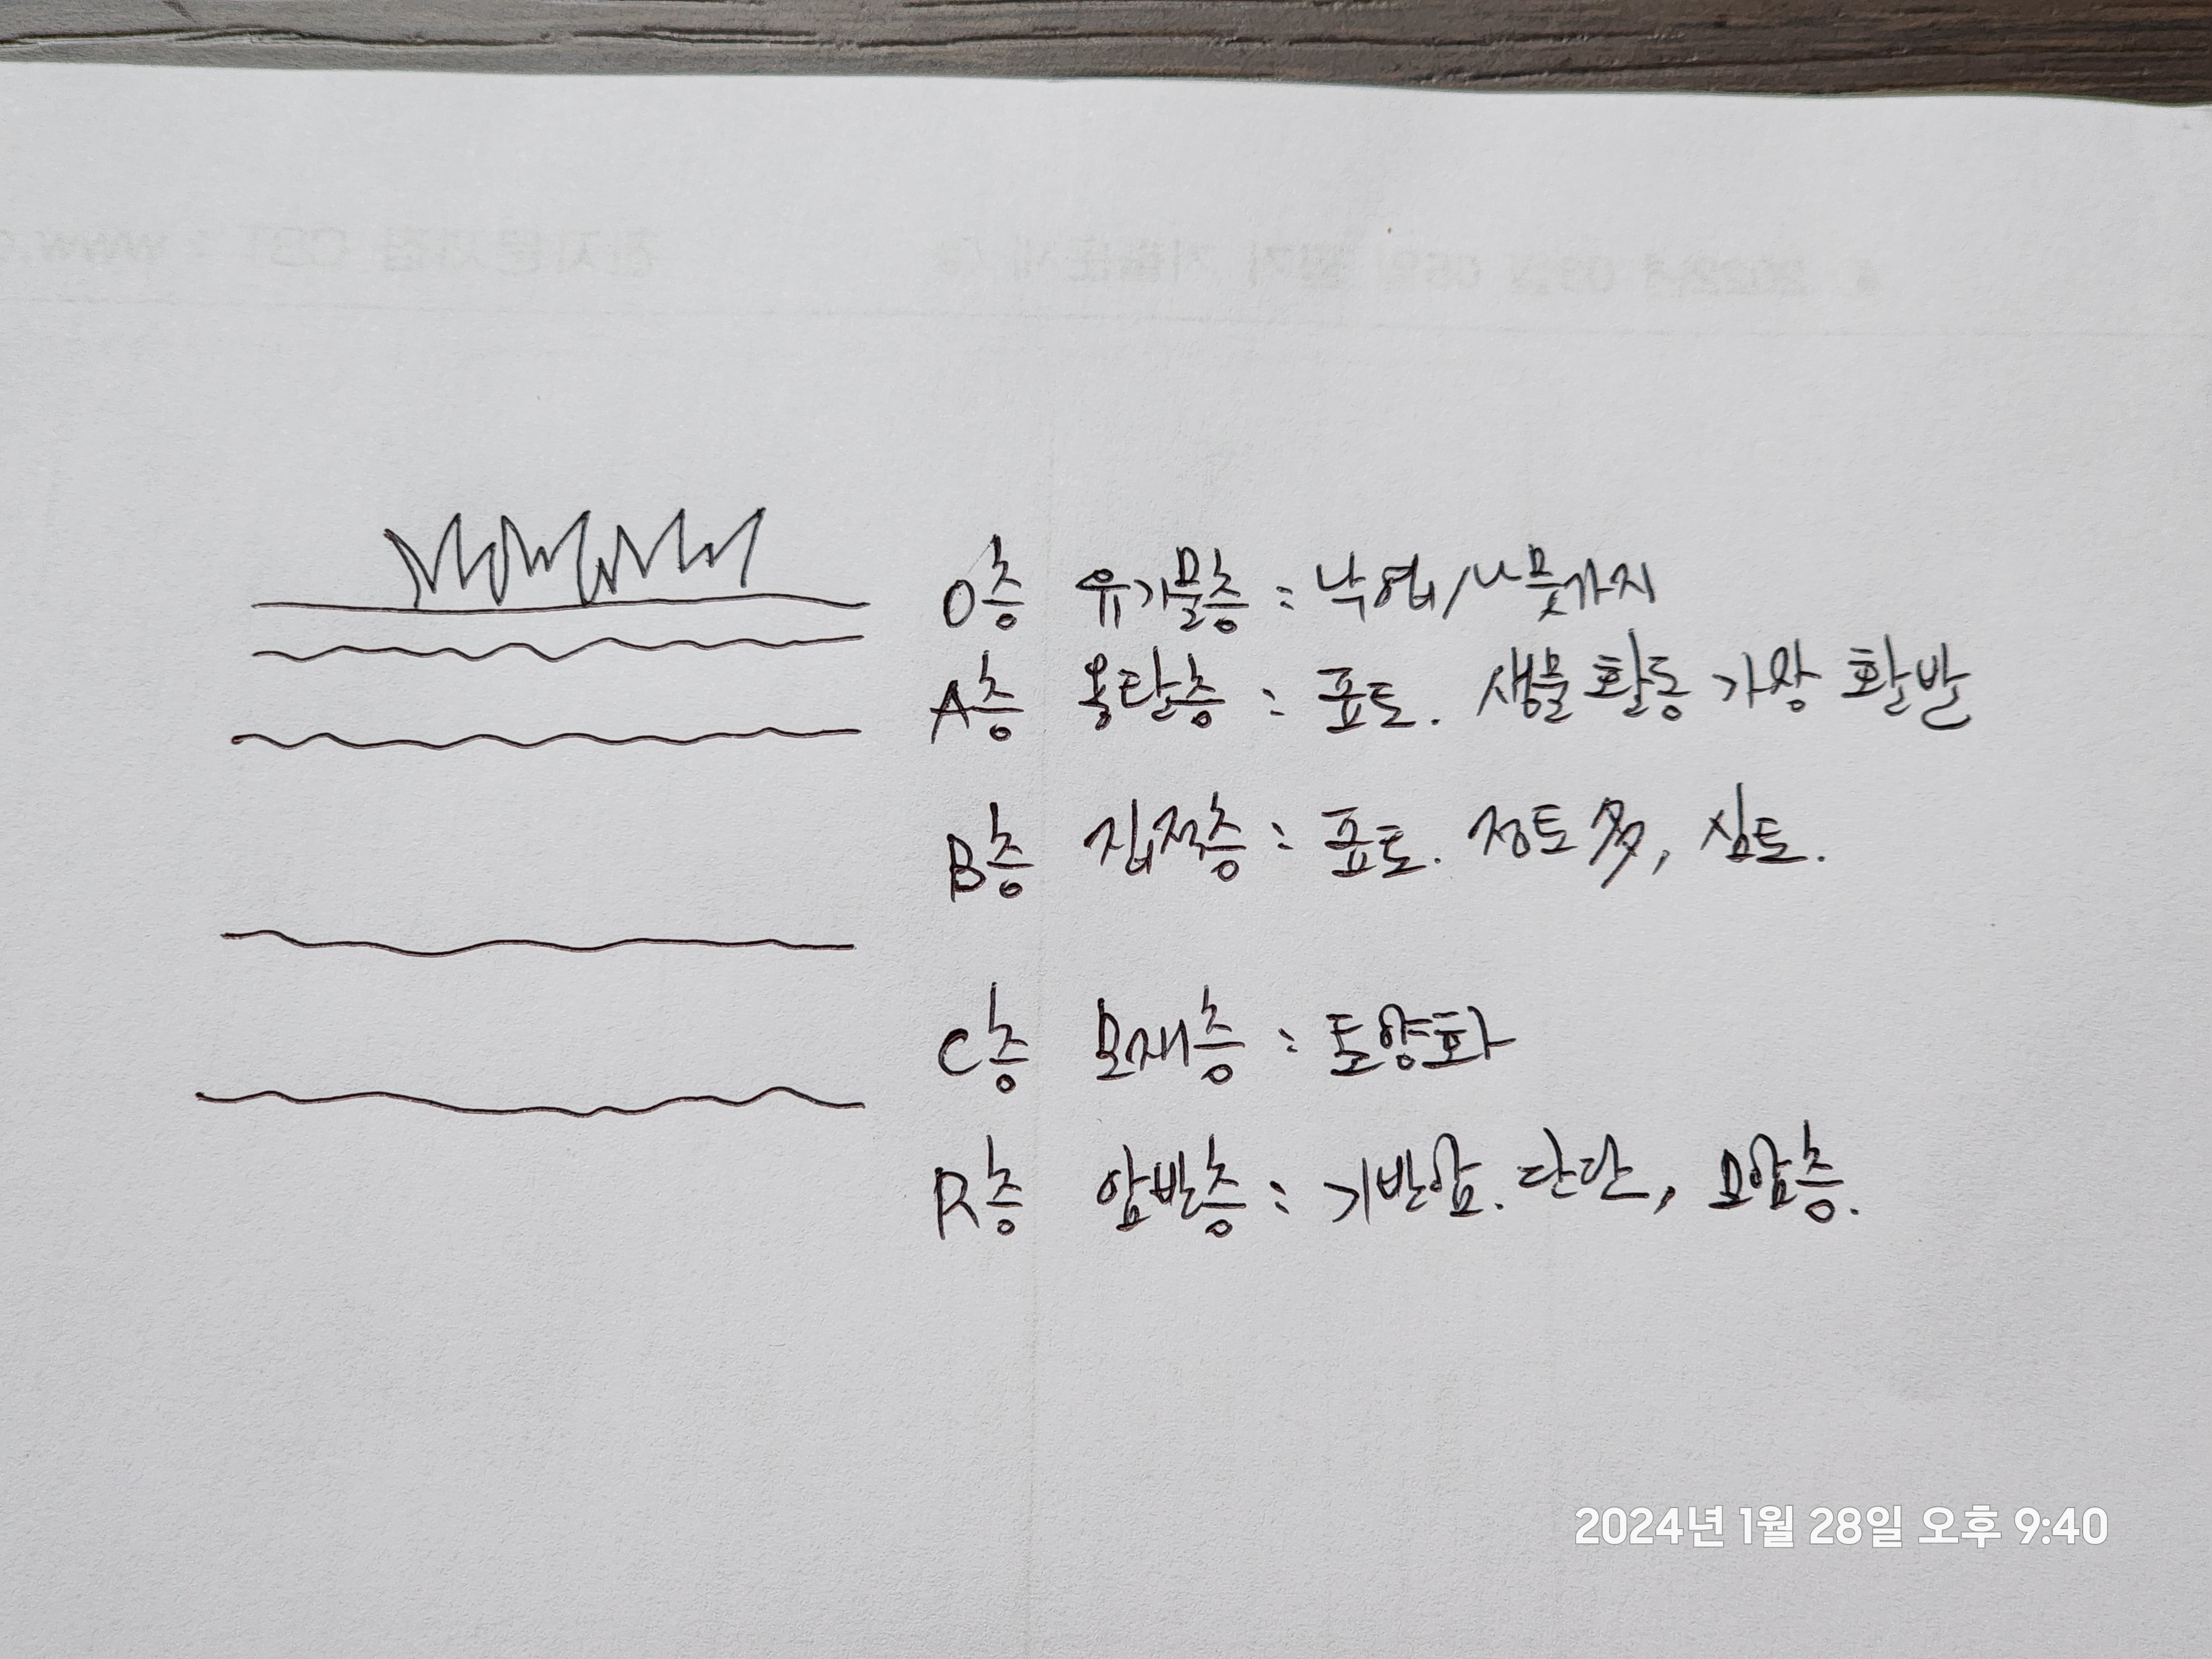 O층 유기물층 : 낙엽/나뭇가지
A층 용탈층 : 표토. 생물 활동 가장 활발
B층 집적층 : 표토. 점토 多, 심토.
C층 모재층 : 토양화
R층 암반층 : 기반암. 단단, 모암층.
2024년 1월 28일 오후 9:40